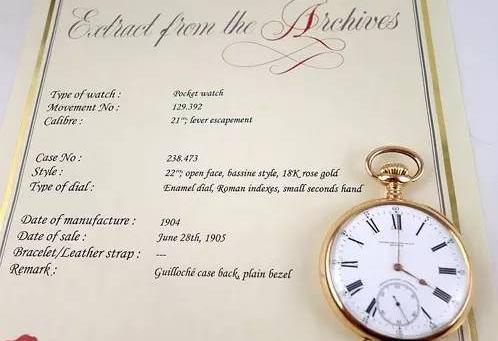 Extract from the Archives
Type of watch : Pocket watch
Movement No : 129.392
Calibre : 21'''; lever escapement
Case No : 238.473
Style : 22'''; open face, bassine style, 18K rose gold
Type of dial : Enamel dial, Roman indexes, small seconds hand
Date of manufacture : 1904
Date of sale : June 28th, 1905
Bracelet/Leather strap : ---
Remark : Guilloché case back, plain bezel